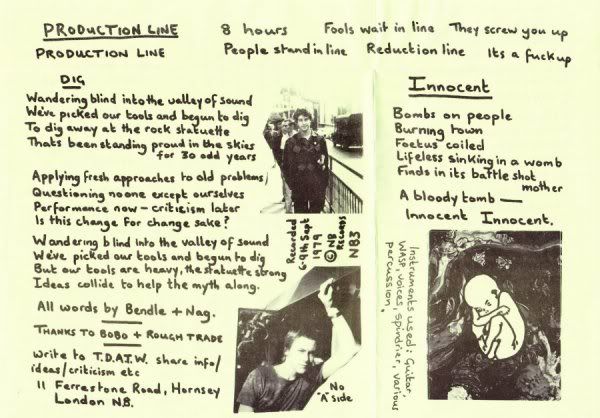 PRODUCTION LINE
8 hours Fools wait in line They screw you up
PRODUCTION LINE People stand in line Reduction line Its a fuck up
DIG
Wandering blind into the valley of sound
We've picked our tools and begun to dig
To dig away at the rock statuette
Thats been standing proud in the skies
for 30 odd years
Applying fresh approaches to old problems
Questioning no one except ourselves
Performance now - criticism later
Is this change for change sake?
Wandering blind into the valley of sound
We've picked our tools and begun to dig
But our tools are heavy, the statuette strong
Ideas collide to help the myth along.
All words by Bendle + Nag.
THANKS TO BOBO + ROUGH TRADE
Write to T.D.A.T.W. share info/
ideas/criticism etc
11 Ferrestone Road, Hornsey
London N8.
Recorded
6-9th Sept
1979
© NB
RECORDS
NB3
No
"A" side
Innocent
Bombs on people
Burning town
Foetus coiled
Lifeless sinking in a womb
Finds in its battle shot
mother
A bloody tomb —
Innocent Innocent.
Instruments used: Guitar
WASP, voices, Spindrier, various
percussion.